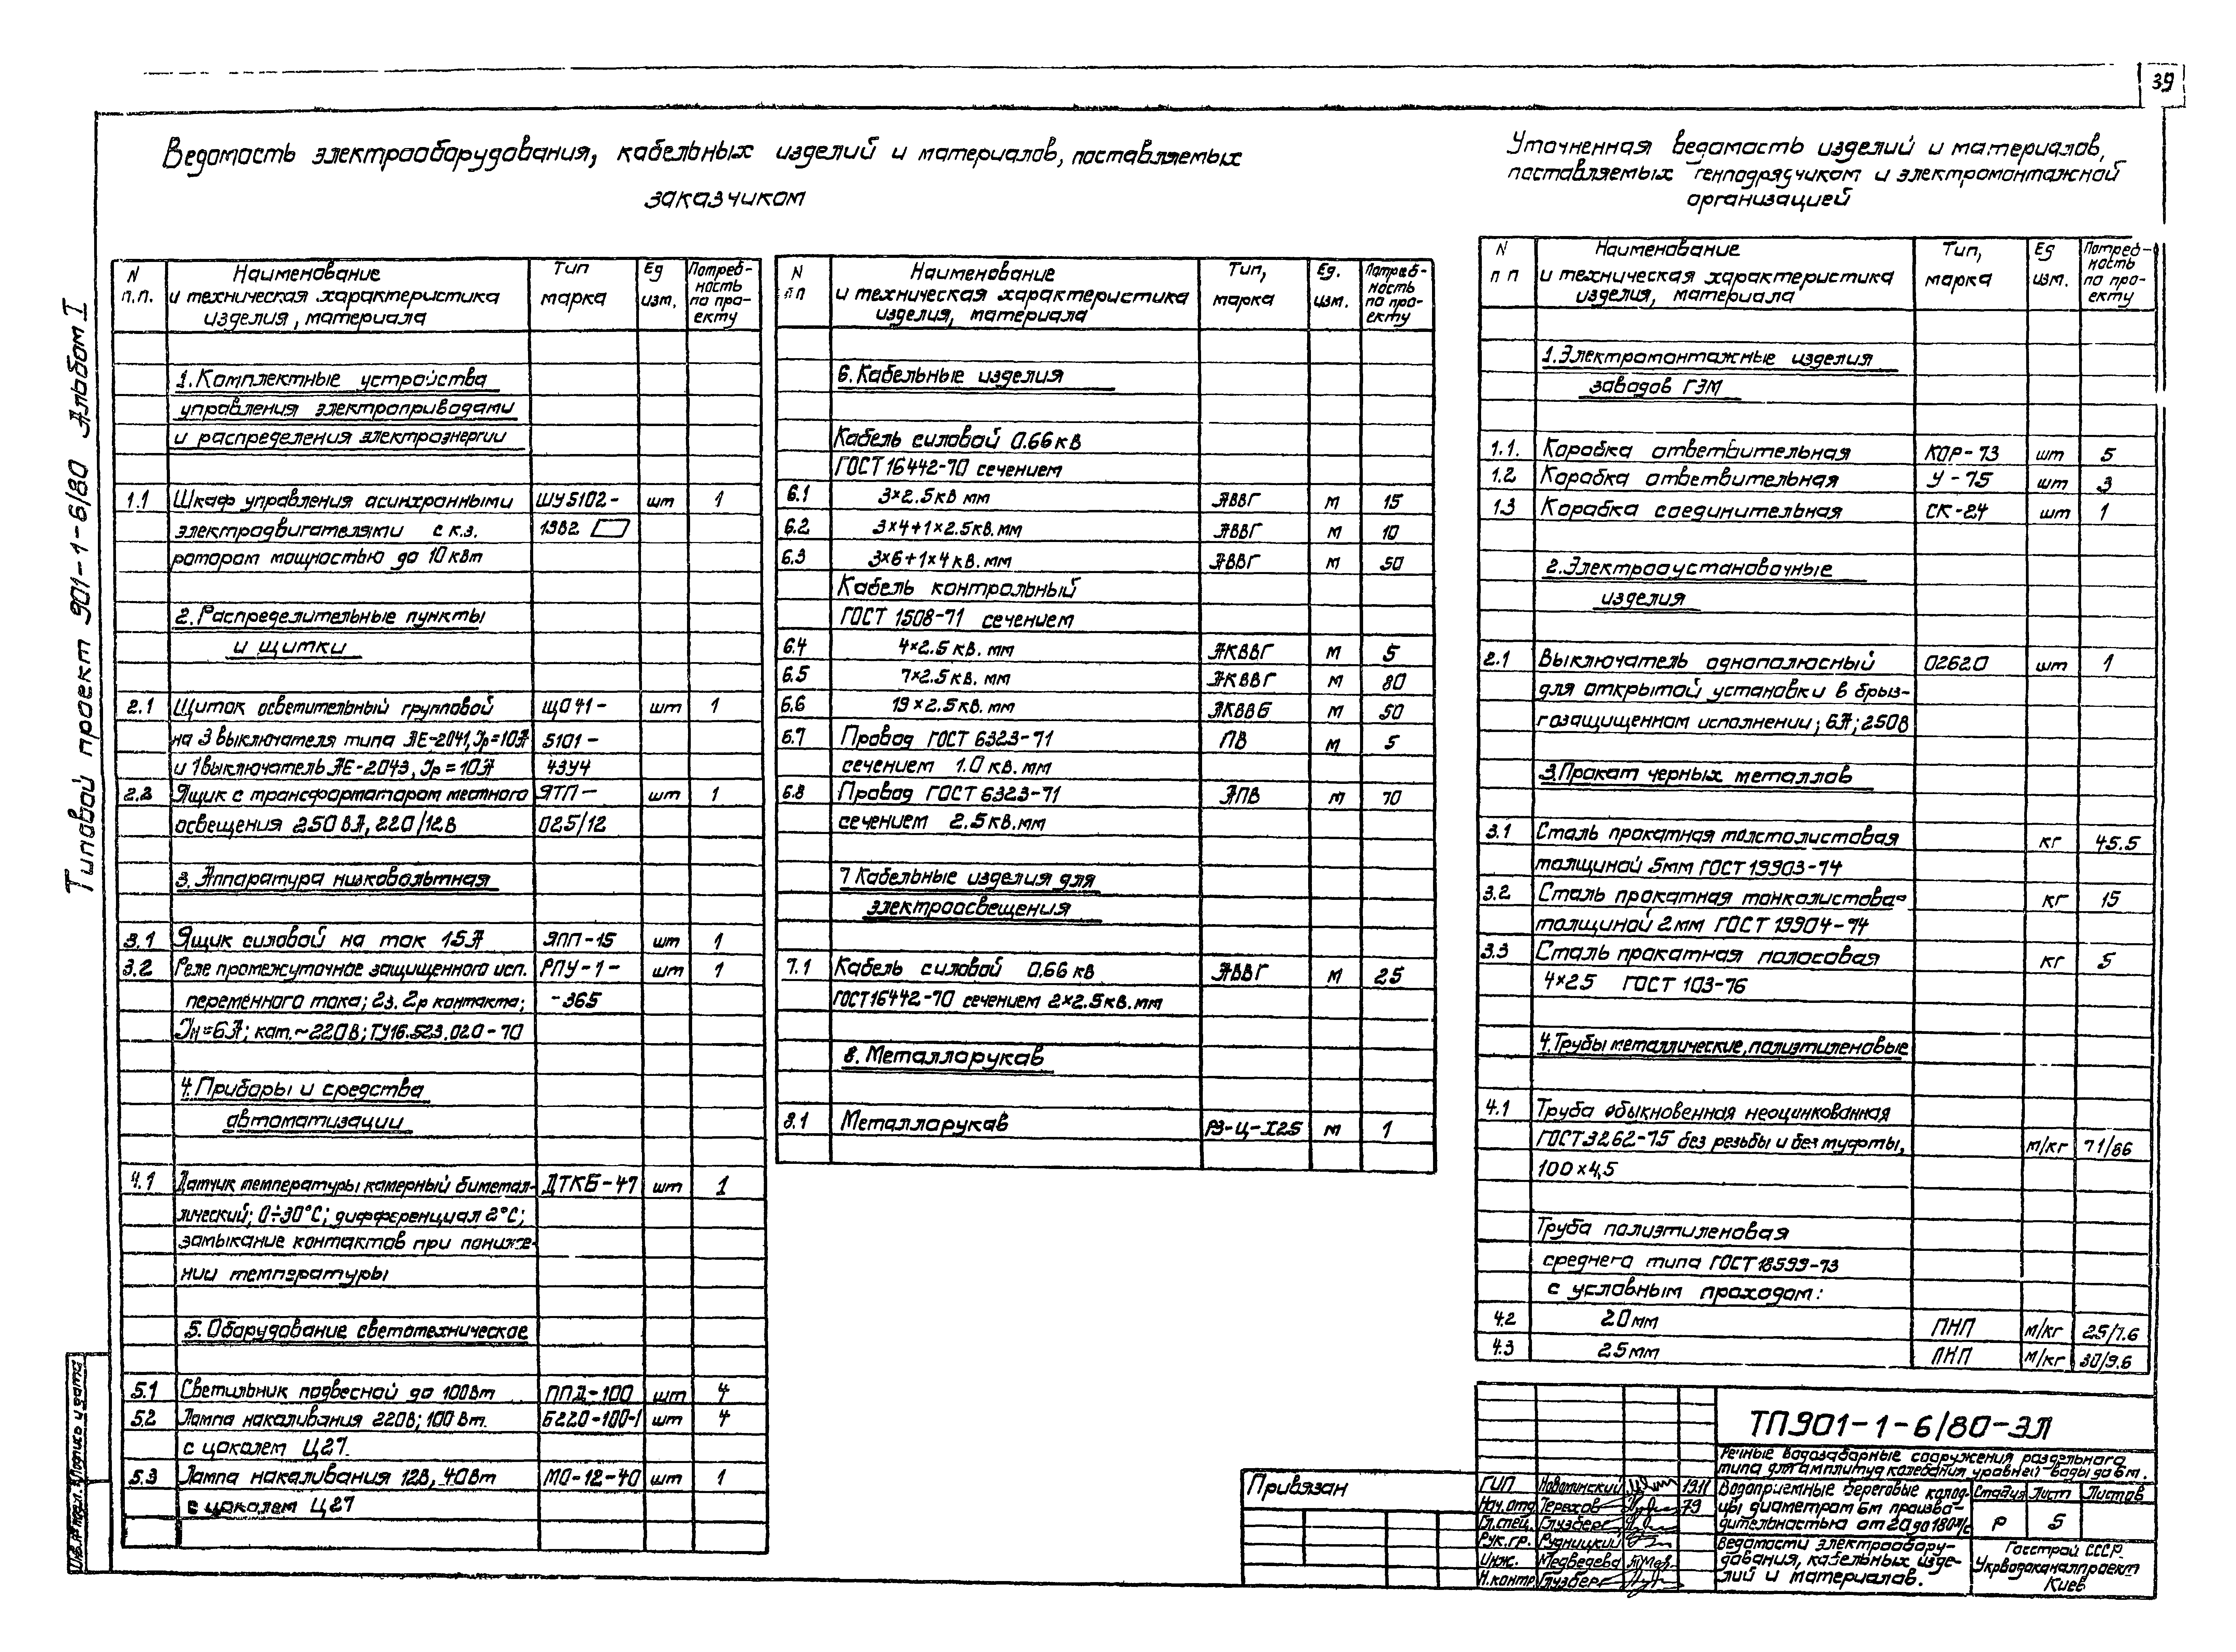 39
Типовой проект 901-1-6/80 Альбом I
Ведомость электрооборудования, кабельных изделий и материалов, поставляемых
заказчиком
N п.п. Наименование и техническая характеристика изделия, материала Тип марка Ед изм. Потреб-ность по про-екту
1. Комплектные устройства
управления электроприводами
и распределения электроэнергии
1.1 Шкаф управления асинхронными ШУ5102- шт 1
электродвигателями с к.з.
ротором мощностью до 10 квт
2. Распределительные пункты
и щитки
2.1 Щиток осветительный групповой ЩО41- шт 1
на 3 выключателя типа АЕ-2041, Iр=10А 5101-
и 1 выключатель АЕ-2043, Iр=10А 43У4
2.2 Ящик с трансформатором местного ЯТП- шт 1
освещения 250 ВА, 220/12в 025/12
3. Аппаратура низковольтная
3.1 Ящик силовой на ток 15А ЯПП-15 шт 1
3.2 Реле промежуточное защищенного исп. РПУ-1- шт 1
переменного тока; 2з. 2р контакта; -365
Iн=6А; кат.~220В; ТУ16.523.020-70
4. Приборы и средства
автоматизации
4.1 Датчик температуры камерный биметал- ДТКБ-47 шт 1
лический; 0÷30°С; дифференциал 2°С;
замыкание контактов при пониже-
нии температуры
5. Оборудование светотехническое
5.1 Светильник подвесной до 100вт ППД-100 шт 4
5.2 Лампа накаливания 220В; 100 вт. Б220-100-1 шт 4
с цоколем Ц27.
5.3 Лампа накаливания 12В, 40вт МО-12-40 шт 1
с цоколем Ц27
N п п Наименование и техническая характеристика изделия, материала Тип, марка Ед. изм. Потреб-ность по про-екту
6. Кабельные изделия
Кабель силовой 0.66 кв
ГОСТ 16442-70 сечением
6.1 3×2.5кв мм АВВГ м 15
6.2 3×4+1×2.5кв.мм АВВГ м 10
6.3 3×6+1×4 кв. мм АВВГ м 50
Кабель контрольный
ГОСТ 1508-71 сечением
6.4 4×2.5 кв. мм АКВВГ м 5
6.5 7×2.5 кв. мм АКВВГ м 80
6.6 19×2.5кв. мм АКВВБ м 50
6.7 Провод ГОСТ 6323-71 ПВ м 5
сечением 1.0 кв. мм
6.8 Провод ГОСТ 6323-71 АПВ м 70
сечением 2.5 кв.мм
7 Кабельные изделия для
электроосвещения
7.1 Кабель силовой 0.66 кв АВВГ м 25
ГОСТ 16442-70 сечением 2×2.5кв.мм
8. Металлорукав
8.1 Металлорукав РЗ-Ц-Х25 м 1
Уточненная ведомость изделий и материалов,
поставляемых генподрядчиком и электромонтажной
организацией
N п п Наименование и техническая характеристика изделия, материала Тип, марка Ед изм. Потреб-ность по про-екту
1. Электромонтажные изделия
заводов ГЭМ
1.1. Коробка ответвительная КОР-73 шт 5
1.2 Коробка ответвительная У-75 шт 3
1.3 Коробка соединительная СК-24 шт 1
2. Электроустановочные
изделия
2.1 Выключатель однополюсный 02620 шт 1
для открытой установки в брыз-
гозащищенном исполнении; 6А; 250В
3. Прокат черных металлов
3.1 Сталь прокатная толстолистовая кг 45.5
толщиной 5мм ГОСТ 19903-74
3.2 Сталь прокатная тонколистовая кг 15
толщиной 2 мм ГОСТ 19904-74
3.3 Сталь прокатная полосовая кг 5
4×25 ГОСТ 103-76
4. Трубы металлические, полиэтиленовые
4.1 Труба обыкновенная неоцинкованная
ГОСТ 3262-75 без резьбы и без муфты, м/кг 7.1/86
100×4,5
Труба полиэтиленовая
среднего типа ГОСТ 18599-73
с условным проходом:
4.2 20 мм ПНП м/кг
4.3 25 мм ПНП м/кг 30/9.6
Привязан
ТП901-1-6/80-ЭЛ
Речные водозаборные сооружения раздельного
типа для амплитуд колебания уровней воды до 6м.
Водоприемные береговые колод-
цы диаметром 6м произво-
дительностью от 20 до 180 л/с
Стадия Лист Листов
Р 5
Ведомости электрообору-
дования, кабельных изде-
лий и материалов.
Госстрой СССР
Укрводоканалпроект
Киев
ГИП
Нач. отд. Терехов 79
Гл. спец. Глузберг
Рук. гр. Рудницкий
Инж. Медведева
Н. контр. Глузберг
Инв. № подл. Подпись и дата